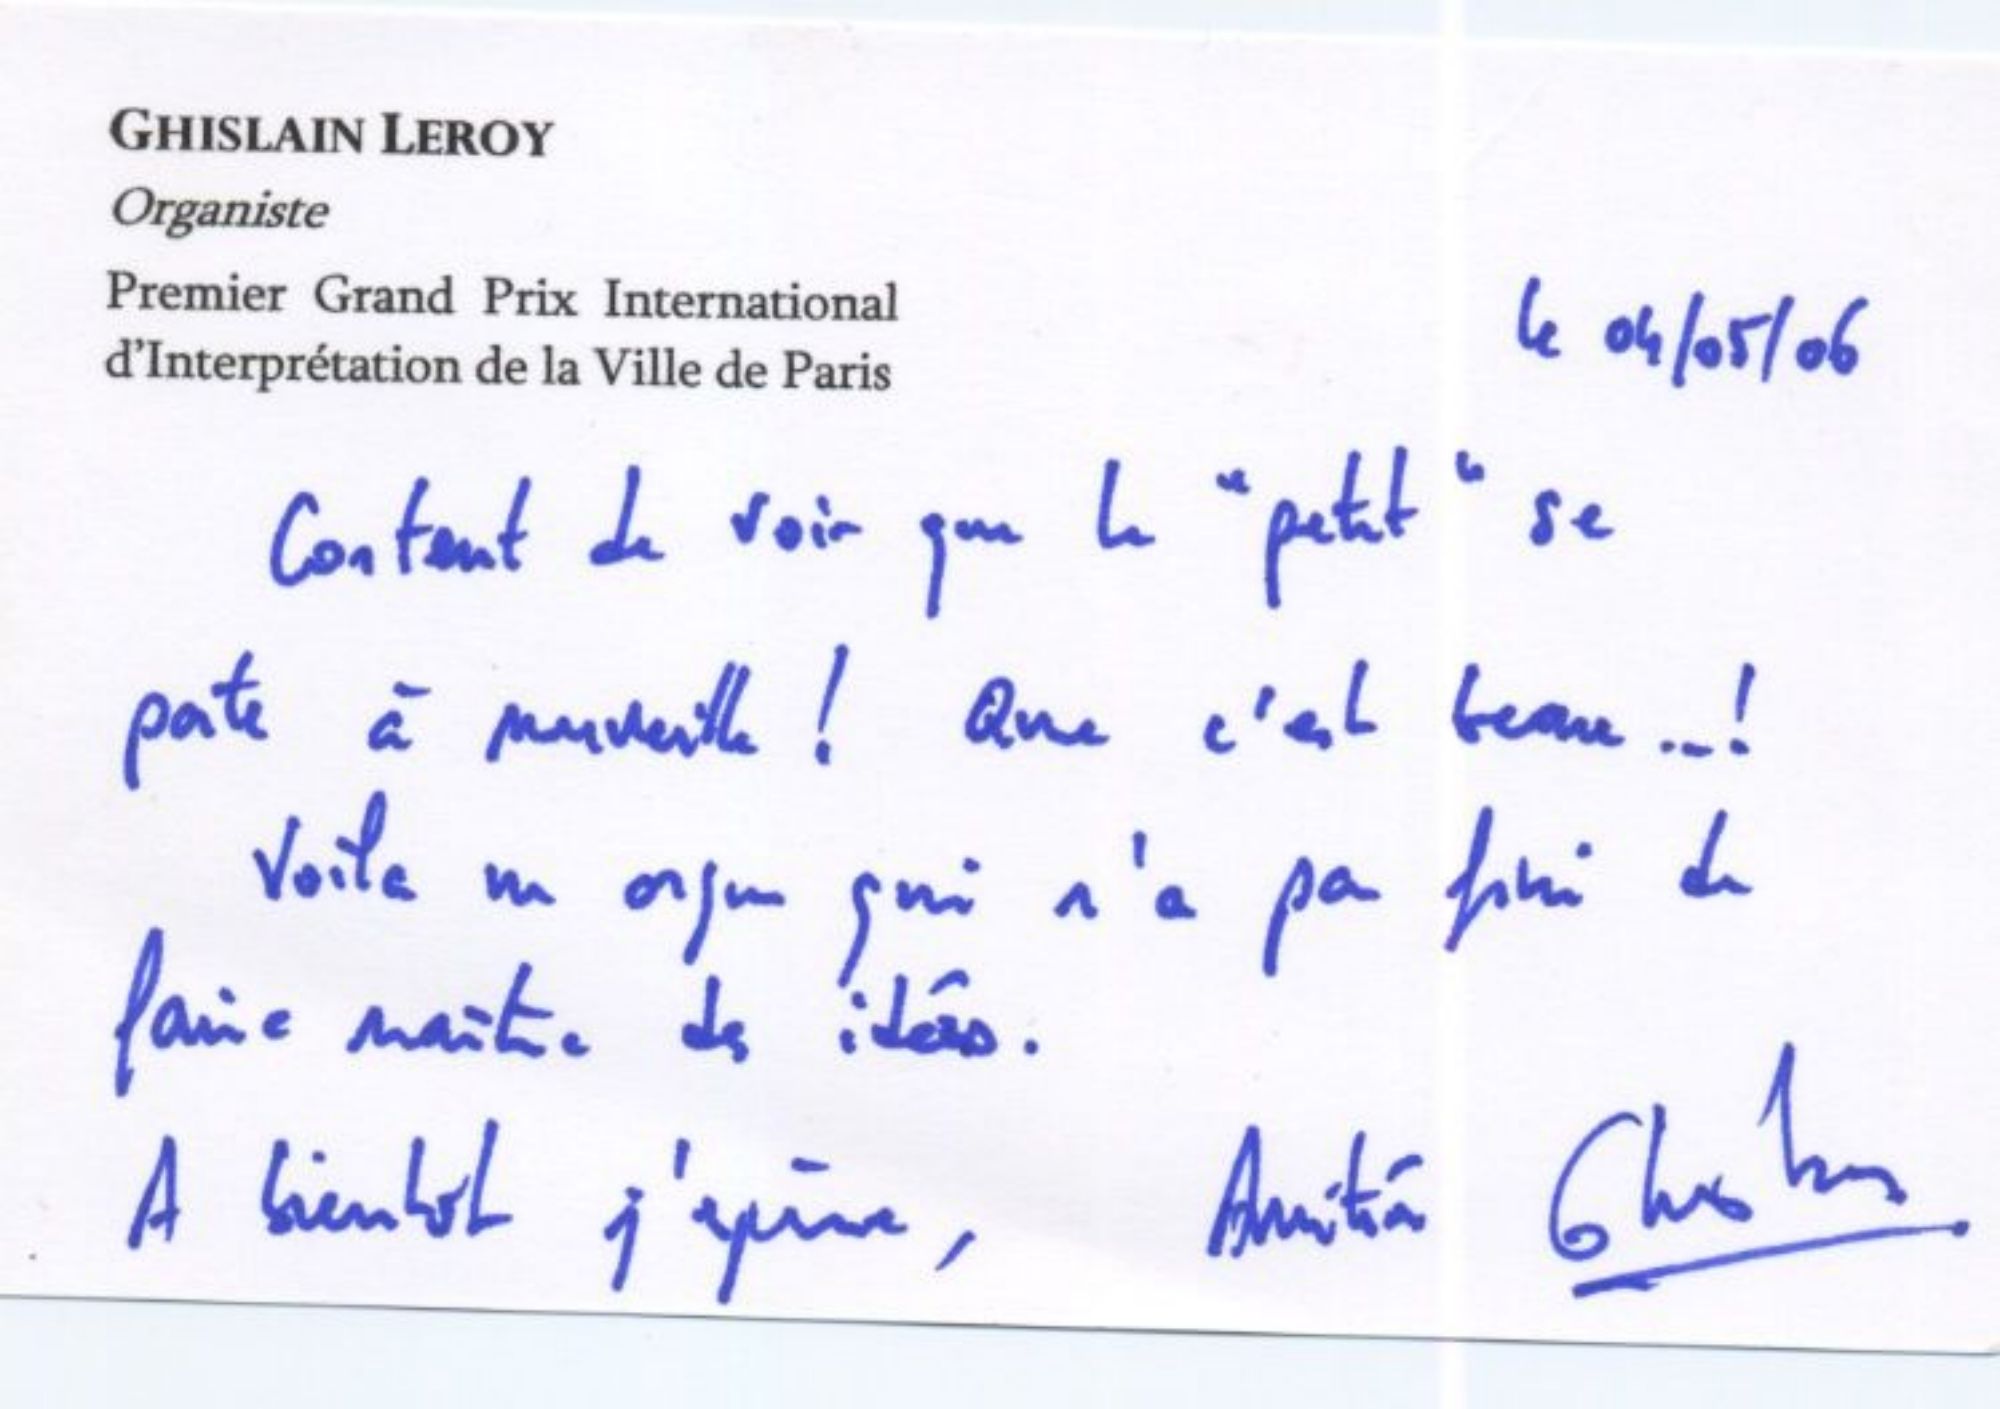 GHISLAIN LEROY
Organiste
Premier Grand Prix International
d'Interprétation de la Ville de Paris
le 04/05/06
Content de voir que le "petit" se
porte à merveille ! Que c'est beau ...!
Voilà un orgue qui n'a pas fini de
faire naître des idées.
A bientôt j'espère, Amitiés Ghislain